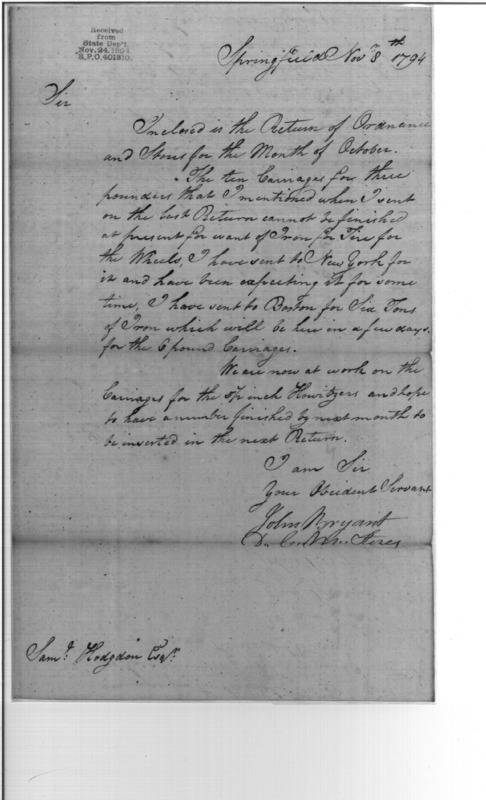 Received
from
State Dep't.
Nov. 24. 1894
R.P.O. 401310.
Springfield Nov.r 8th 1794
Sir
Inclosed is the Return of Ordnance
and Stores for the Month of October.
The ten Carriages for three
pounders that I mentioned when I sent
on the last Return cannot be finished
at present for want of Iron for Tire for
the Wheels, I have sent to New York for
it and have been expecting it for some
time, I have sent to Boston for Six Tons
of Iron which will be here in a few days.
for the 6 pound Carriages.
We are now at work on the
Carriages for the Inch Howitzers and hope
to have a number finished by next month to
be inserted in the next Return.
I am Sir
Your Obeident Servant
John Bryant
Saml. Hodgdon Esqr.